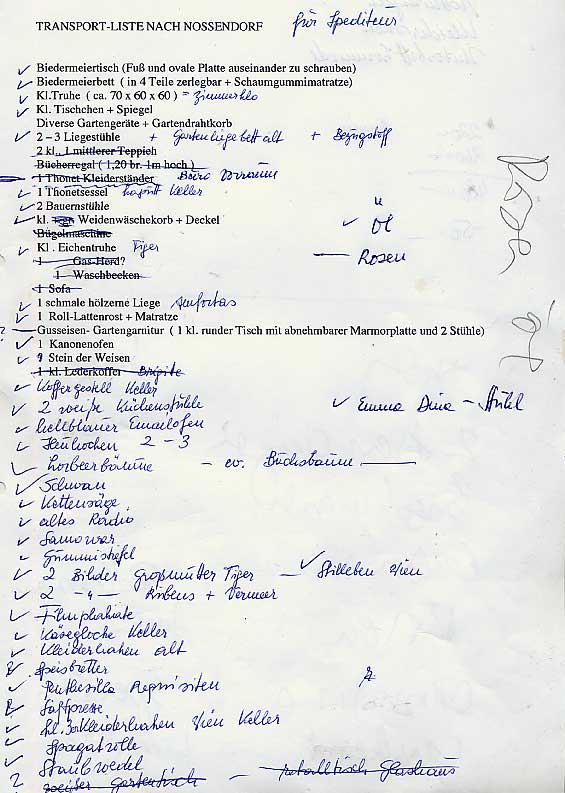 TRANSPORT-LISTE NACH NOSSENDORF für Spediteur
Biedermeiertisch (Fuß und ovale Platte auseinander zu schrauben)
Biedermeierbett ( in 4 Teile zerlegbar + Schaumgummimatratze)
Kl.Truhe ( ca. 70 x 60 x 60 ) = Zimmerklo
Kl. Tischchen + Spiegel
Diverse Gartengeräte + Gartendrahtkorb
2 – 3 Liegestühle + Gartenliegebett alt + Bezugstoff
2 kl., 1 mittlerer Teppich
Bücherregal ( 1,20 br. 1m hoch )
1 Thonet Kleiderständer Büro Vorraum
1 Thonetsessel kaputt Keller
2 Bauernstühle
kl. Weidenwäschekorb + Deckel Öl
Bügelmaschine
Kl . Eichentruhe Tiger Rosen
1 Gas-Herd?
1 Waschbecken
1 Sofa
1 schmale hölzerne Liege Amfortas
1 Roll-Lattenrost + Matratze
? Gusseisen- Gartengarnitur ( 1 kl. runder Tisch mit abnehmbarer Marmorplatte und 2 Stühle)
1 Kanonenofen
9 Stein der Weisen
1 kl. Lederkoffer Brigitte
Koffergestell Keller
2 weiße Küchenstühle Emma Dina – Stuhl
hellblauer Emailofen
2 – 3
Lorbeerbäume – ev. Buchsbaum
Schwan
Kettensäge
altes Radio
Samowar
Gummistiefel
2 Bilder Großmutter Tiger – Stilleben Wien
2 –"– Rubens + Vermeer
Filmplakate
Käseglocke Keller
Kleiderhaken alt
Speisbretter
Penthesilea Requisiten
Saftpresse
kl. Kleiderhaken Wien Keller
Spagatrolle
Staubwedel
2 weißer Gartentisch – Metalltisch Glashaus